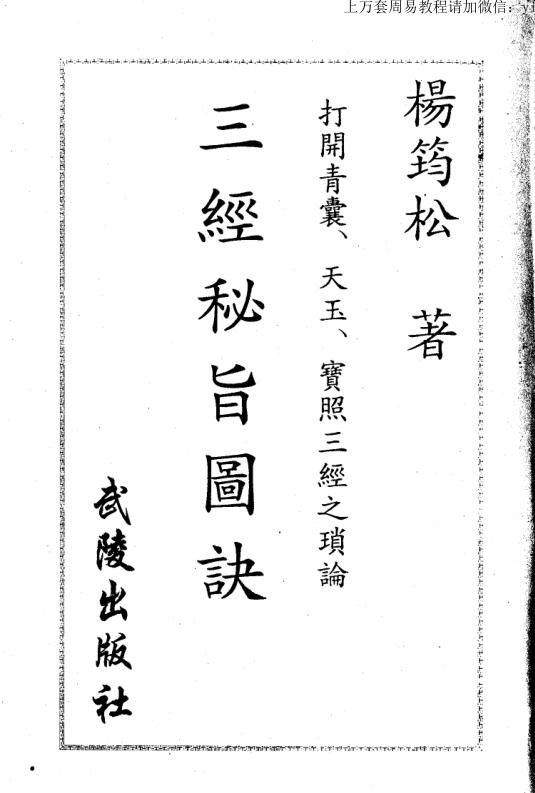 上万套周易教程请加微信：yi
楊筠松 著
打開青囊、天玉、寶照三經之瑣論
三經秘旨圖訣
武陵出版社